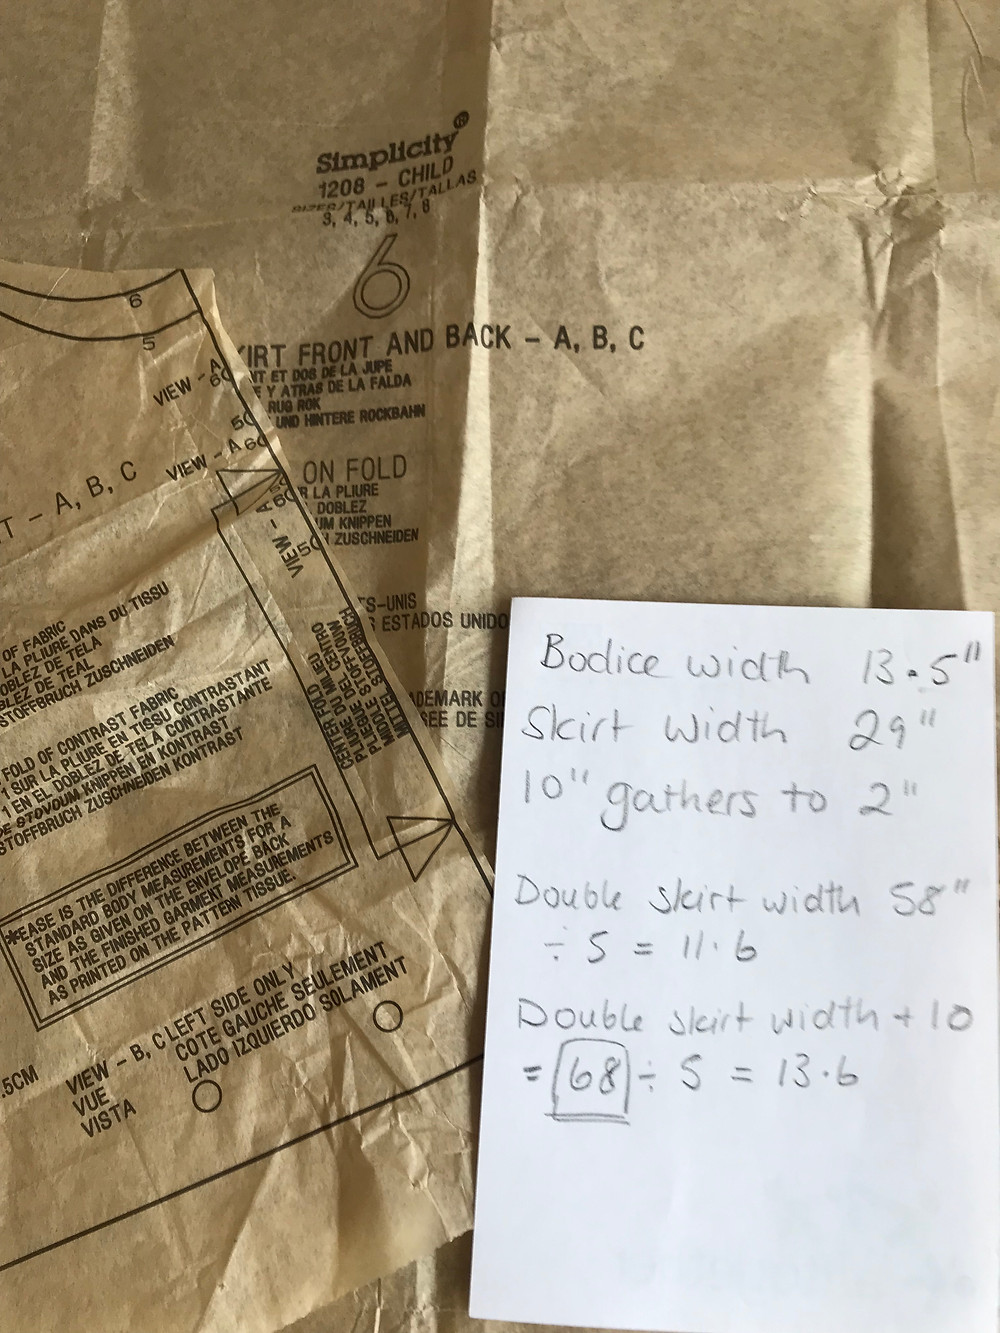 Simplicity®
1208 - CHILD
SIZES/TAILLES/TALLAS
3, 4, 5, 6, 7, 8
6
KIRT FRONT AND BACK - A, B, C
NT ET DOS DE LA JUPE
E Y ATRAS DE LA FALDA
RUG ROK
UND HINTERE ROCKBAHN
ON FOLD
R LA PLIURE
DOBLEZ
UM KNIPPEN
ZUSCHNEIDEN
TS-UNIS
ESTADOS UNIDO
DEMARK O
ÉE DE SI
6
5
VIEW - A
60
50
VIEW - A 60
VIEW - A 60
50
T - A, B, C
OF FABRIC
LA PLIURE DANS DU TISSU
OBLEZ DE TELA
BLEZ DE TEAL
STOFFBRUCH ZUSCHNEIDEN
FOLD OF CONTRAST FABRIC
1 SUR LA PLIURE EN TISSU CONTRASTANT
1 EN EL DOBLEZ DE TELA CONTRASTANTE
STOVOUM KNIPPEN EN KONTRAST
STOFFBRUCH ZUSCHNEIDEN KONTRAST
CENTER FOLD
PLIURE DU MILIEU
PLIEGUE DEL CENTRO
MIDDLE STOFFVOUW
MITTEL STOFFBRUCH
*EASE IS THE DIFFERENCE BETWEEN THE
STANDARD BODY MEASUREMENTS FOR A
SIZE AS GIVEN ON THE ENVELOPE BACK
AND THE FINISHED GARMENT MEASUREMENTS
AS PRINTED ON THE PATTERN TISSUE.
.5CM
VIEW - B, C LEFT SIDE ONLY
VUE COTE GAUCHE SEULEMENT
VISTA LADO IZQUIERDO SOLAMENT
Bodice width 13.5"
Skirt width 29"
10" gathers to 2"
Double skirt width 58"
÷ 5 = 11.6
Double skirt width + 10
= 68 ÷ 5 = 13.6